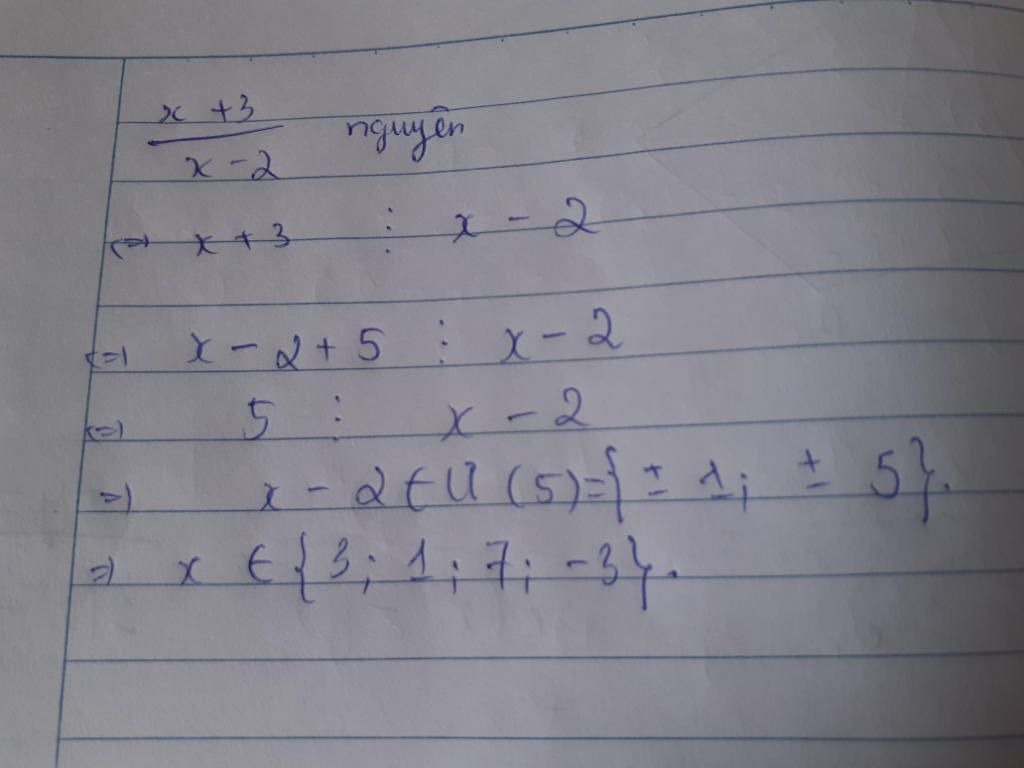 x + 3 / x - 2 nguyên
<=> x + 3 ⋮ x - 2
<=> x - 2 + 5 ⋮ x - 2
<=> 5 ⋮ x - 2
=> x - 2 ∈ Ư (5) = { ± 1; ± 5}.
=> x ∈ {3; 1; 7; -3}.